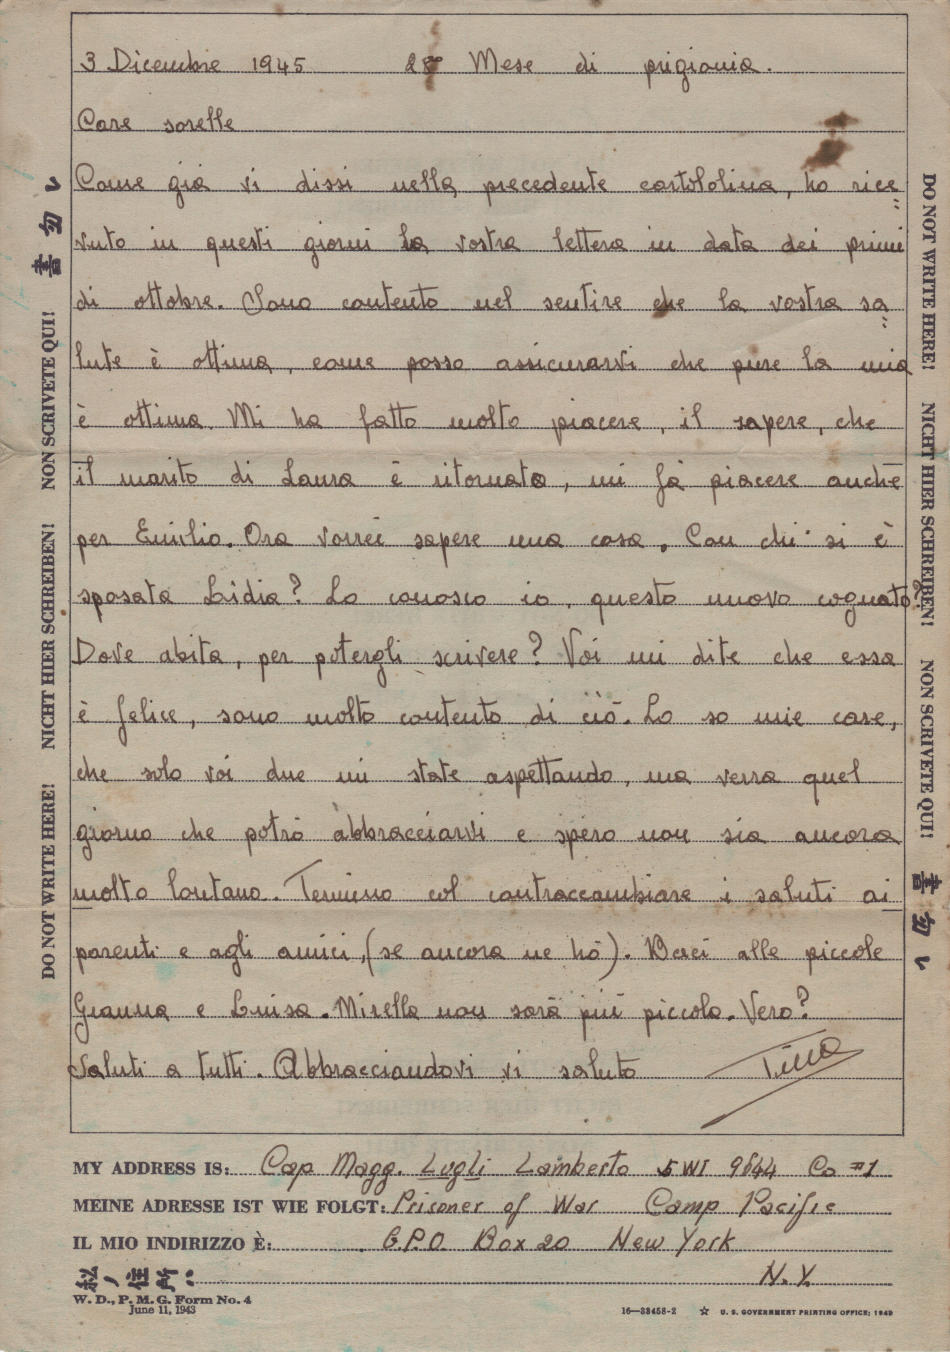 3 Dicembre 1945 Mese di prigionia.
Care sorelle
Come già vi dissi nella precedente cartololina, ho rice=
vuto in questi giorni la vostra lettera in data dei primi
di ottobre. Sono contento nel sentire che la vostra sa=
lute è ottima, come posso assicurarvi che pure la mia
è ottima. Mi ha fatto molto piacere, il sapere, che
il marito di Laura è ritornato, mi fà piacere anche
per Emilio. Ora vorrei sapere una cosa. Con chi si è
sposata Lidia? Lo conosco io, questo nuovo cognato?
Dove abita, per potergli scrivere? Voi mi dite che essa
è felice, sono molto contento di ciò. Lo so mie care,
che solo voi due mi state aspettando, ma verra quel
giorno che potrò abbracciarvi e spero non sia ancora
molto lontano. Termino col contraccambiare i saluti ai
parenti e agli amici, (se ancora ne hò). Baci alle piccole
Gianna e Luisa. Mirella non sarà più piccola. Vero?
Saluti a tutti. Abbracciandovi vi saluto
MY ADDRESS IS: Cap Magg. Lugli Lamberto 5 WI 9644 Co #1
MEINE ADRESSE IST WIE FOLGT: Prisoner of War Camp Pacific
IL MIO INDIRIZZO È: G.P.O. Box 20 New York
私ノ住所ハ N.Y.
W. D., P. M. G. Form No. 4
June 11, 1943
16—33458-2 ☆ U. S. GOVERNMENT PRINTING OFFICE: 1943
DO NOT WRITE HERE! NICHT HIER SCHREIBEN! NON SCRIVETE QUI! 書勿レ
DO NOT WRITE HERE! NICHT HIER SCHREIBEN! NON SCRIVETE QUI! 書勿レ